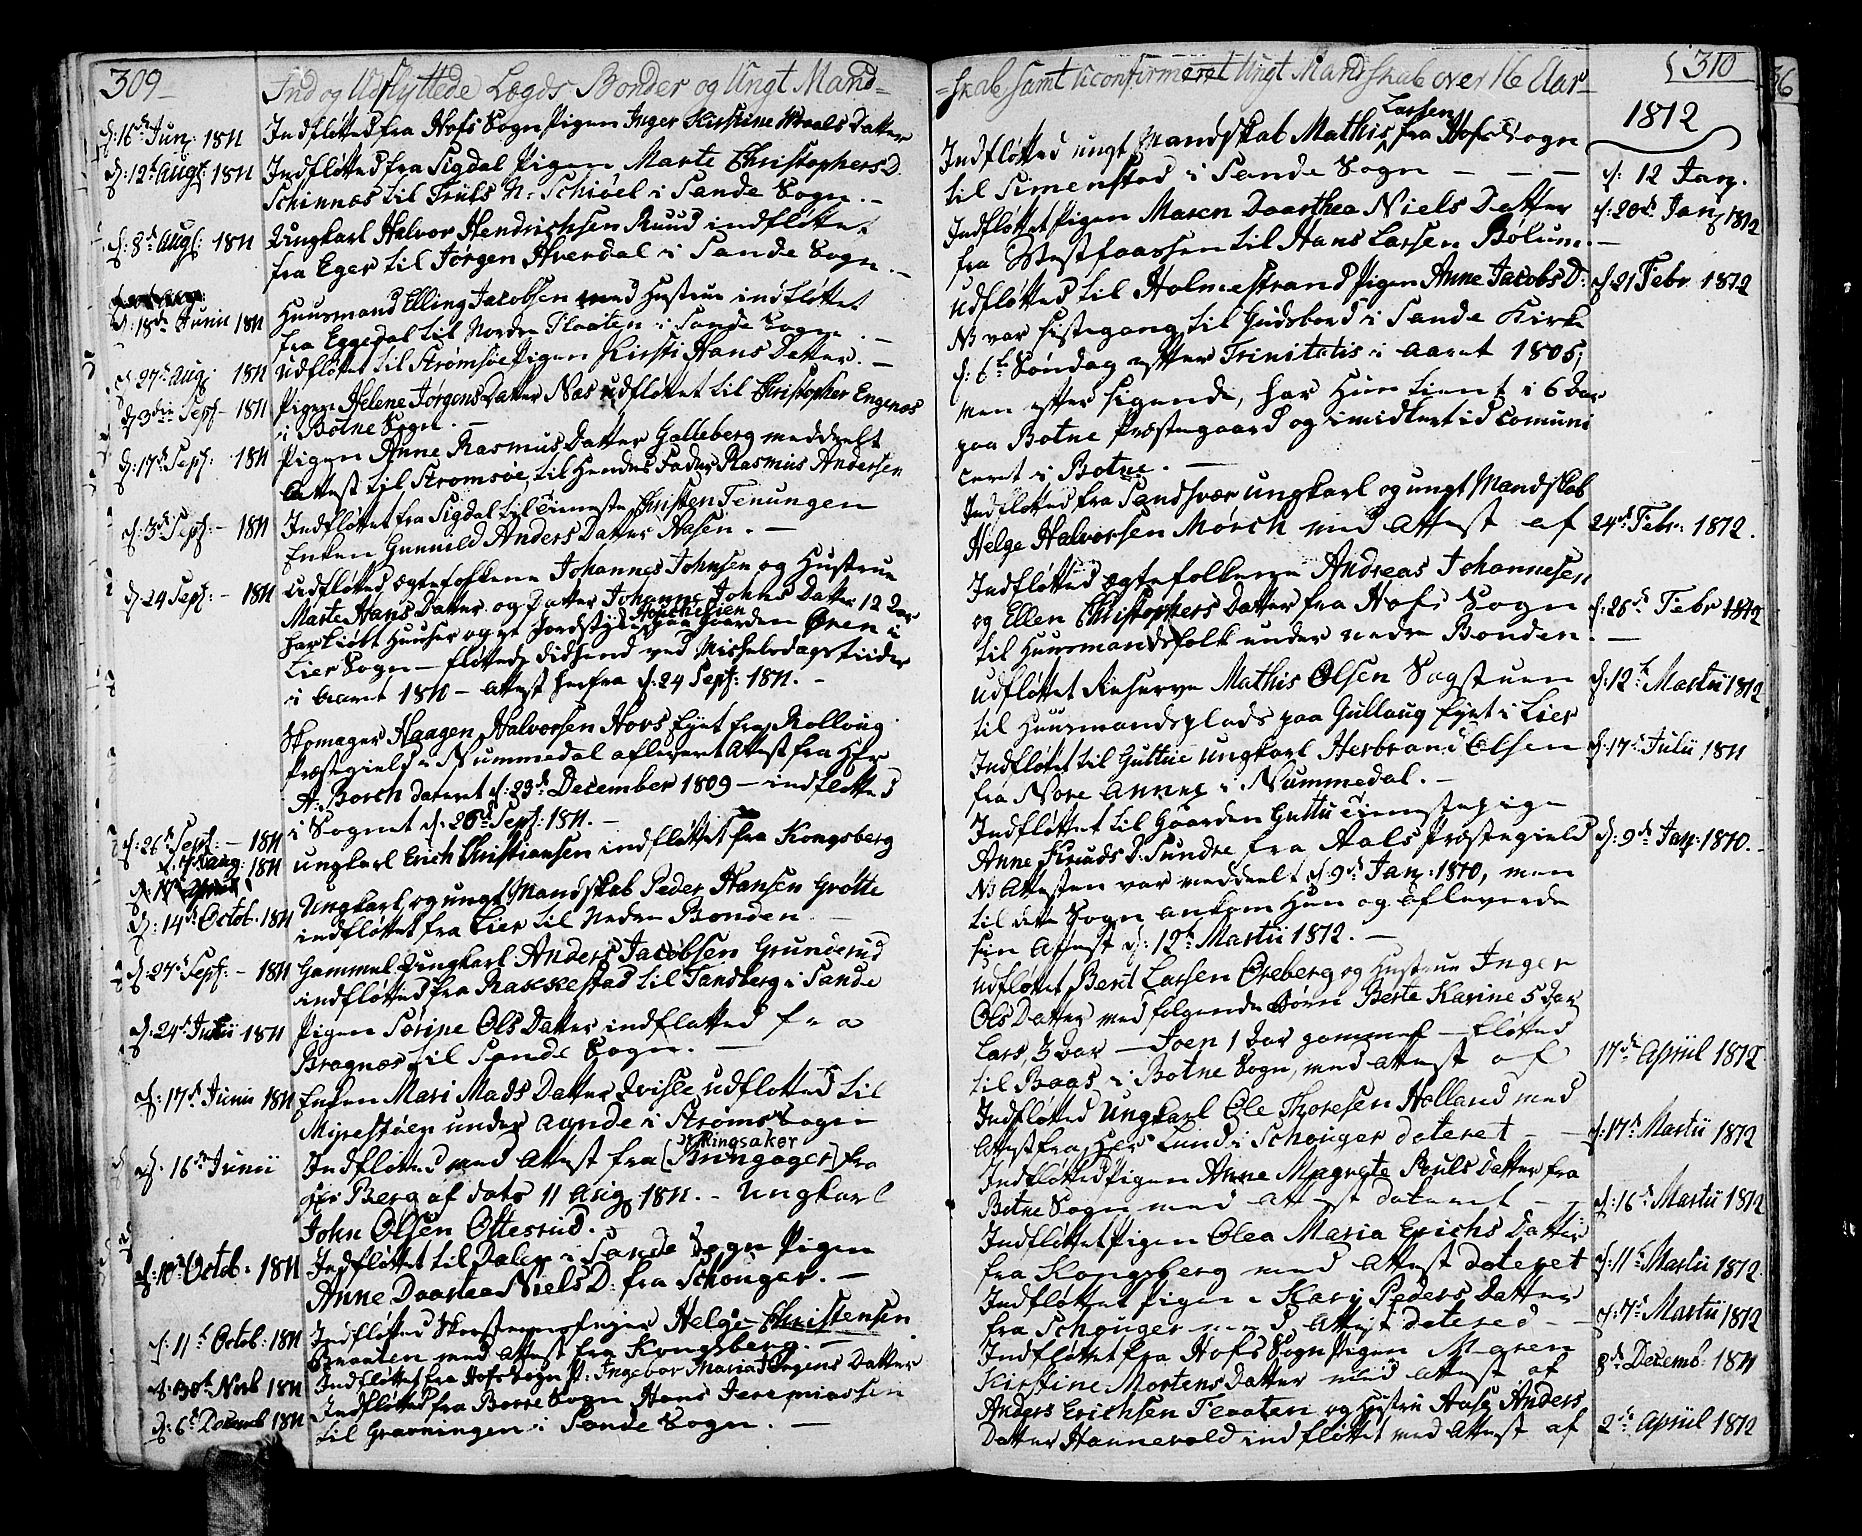 309
Ind og Udflyttede Lægds Bønder og Ungt Mand=
d: 16de Junj 1811 Indfløtted fra Hofs Sogn Pigen Inger Kirstine Datter
d: 12te Augs: 1811 Indfløtted fra Sigdal Pigen Marte Christophers D.
Schinnæs til N: Schiøel i Sande Sogn. –
d: 8de Augs: 1811 Ungkarl Halvor Hendrichsen Ruud indfløttet
fra Eger til Jørgen Hverdal i Sande Sogn. –
Huusmand Elling Jacobsen med Hustrue indfløttet
d: 18de Junii 1811 fra Eggedal til Nordre Plaaten i Sande Sogn. –
d: 27de Aug: 1811 Udfløttet til Strømsøe Pigen Kirsti Hans Datter. –
d: 3die Sept – 1811 Pigen Helene Jørgens Datter Næs udfløttet til Christopher Engenæs
i Botne Sogn. –
d: 17de Sept: 1811 Pigen Anne Rasmus Datter Galleberg meddeelt
Attest til Strømsøe til Hendes Fader Rasmus Andersen
d: 3de Sept: – 1811 Indfløttet fra Sigdal til Tieneste Christen Tenungen
Enken Gunnild Anders Datter Hasen. –
d: 24 Sept: – 1811 Udfløtted Ægtefolkene Johannes Johnsen og Hustrue
Marte Hans Datter og Datter Johanne Johns Datter 12 Aar
har kiøbt Huuser og et Jordstykke paa Gaarden Øren i
Lier Sogn – fløttede didhend ved Michelsdagstiider
i Aaret 1811 – Attest herfra d: 24 Sept: 1811. –
Skomager Haagen Halvorsen Hovs Eyet fra Rolloug
Præstegield i Nummedal afleveret Attest fra Hr
A: Borch dateret d: 29de December 1809 – indfløtted
i Sognet d: 26de Sept: 1811. –
d: 26de Sept: – 1811
Aug: 1811 Ungkarl Erich Christiansen indfløttet fra Kongsberg
d: 14de Octob: 1811 Ungkarl og ungt Mandskab Peder Hansen Grotte
indfløttet fra Lier til Nedre Bonden –
d: 27de Sept: – 1811 Gammel Ungkarl Anders Jacobsen Grunderud
indfløtted fra Rakkestad til Sandberg i Sande
d: 24de Julii 1811 Pigen Sørine Ols Datter indfløtted fra
Bragnæs til Sande Sogn. –
d: 17de Junii 1811 Enken Mari Mads Datter Tvisle udfløtted til
Mirestøen under Aarnde i Strøms Sogn
Ringsaker
d: 16de Junii Indfløtted med Attest fra (Bringager) fra
Hr Berg af dato 11 Aug 1811. – Ungkarl
John Olsen Ottesrud. –
d: 10de Octob: 1811 Indfløttet til Dalen i Sande Sogn Pigen
Anne Daartaa Niels D: fra Schouger. –
d: 11te Octob: 1811 Indfløtted Skorsteensfejer Helge Christensen
Braaten med Attest fra Kongsberg. –
d: 30te Novb 1811 Indfløttet fra Hofs Sogn P: Ingebor Maria Jørgens Datter
d: 6te Decemb 1811 Indfløtted fra Borre Sogn Hans Jeremiassen
til Gravningen i Sande Sogn. –
310
=skab samt uconfirmeret Ungt Mandskab over 16 Aar
1812
Larsen
Indfløtted ungt Mandskab Mathis fra Hofs Sogn
til Simenstad i Sande Sogn – – – d: 12 Janj.
Indfløttet Pigen Maren Daarthea Niels Datter d: 20de Janj 1812
fra Westfaassen til Hans Larsen Bølum. –
Udfløtted til Holmestrand Pigen Anne Jacobs D: d: 21 Febr 1812
NB var sistegang til Gudsbord i Sande Kirke
d: 6te Søndag efter Trinitatis i Aaret 1805,
men efter sigende, har Hun tient i 6 Aar
paa Botne Præstegaard og imidlertid comuni
ceret i Botne. –
Indfløtted fra Sandsvær ungkarl og ungt Mandskab
Helge Halvorsen Mørch med Attest af 24de Febr: 1812.
Indfløtted Ægtefolkene Andreas Johannesen
og Ellen Christophers Datter fra Hofs Sogn d: 26de Febr 1812
til Huusmandsfolk under nedre Bonden. –
Udfløttet Reserve Mathis Olsen Sagstuen d: 12te Martii 1812
til Huusmandsplads paa Gullaug Eyet i Lier
Indfløttet til Guttue Ungkarl Herbrand Olsen d: 17de Julii 1811
fra Nore Annex i Nummedal. –
Indfløttet til Gaarden Guttu Tienestepige
Anne Knuds D: Sundre fra Aals Præstegield d: 9de Janj: 1810. –
NB Attesten var meddeelt d: 9de Janj: 1810, men
til dette Sogn ankom Hun og afleverede
sin Attest d: 12te Martii 1812. –
Udfløttet Berit Larsen Oreberg og Hustrue Inger
Ols Datter med følgende Børn Berte Karine 5 Aar
Lars 3 Aar – Joen 1 Aar gammel – fløtted
til Baas i Botne Sogn, med Attest af 17de Apriil 1812
Indfløtted Ungkarl Ole Thoresen Holland med
Attest fra Hr Lund i Schouger dateret – – d: 17de Martii 1812
Indfløtted Pigen Anne Magrete Pouls Datter fra
Botne Sogn med Attest dateret – – d: 16de Martii 1812
Indfløttet Pigen Olea Maria Erichs Datter
fra Kongsberg med Attest dateret d: 11te Martii 1812
Indfløttet Pigen Kari Peders Datter
fra Schouger med Attest datered – – d: 7de Martii 1812
Indfløttet fra Hofs Sogn Pigen Maren
Kirstine Mortens Datter med Attest af 8de Decemb: 1811
Anders Erichsen Plaaten og Hustru Aase Anders
Datter Hannevold indfløttet med Attest af 2de Apriil 1812